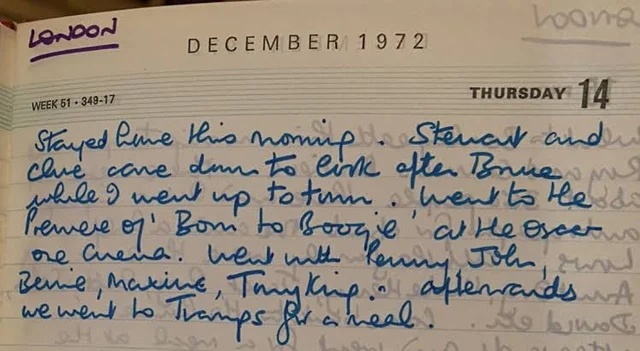 LONDON
DECEMBER 1972
WEEK 51 · 349-17
THURSDAY 14
Stayed home this morning. Stewart and
Clive came down to look after Bruce
while I went up to town. Went to the
Premiere of 'Born to Boogie' at the Oscar
one Cinema. Went with Penny, John,
Bernie, Maxine, Tony King. afterwards
we went to Tramps for a meal.